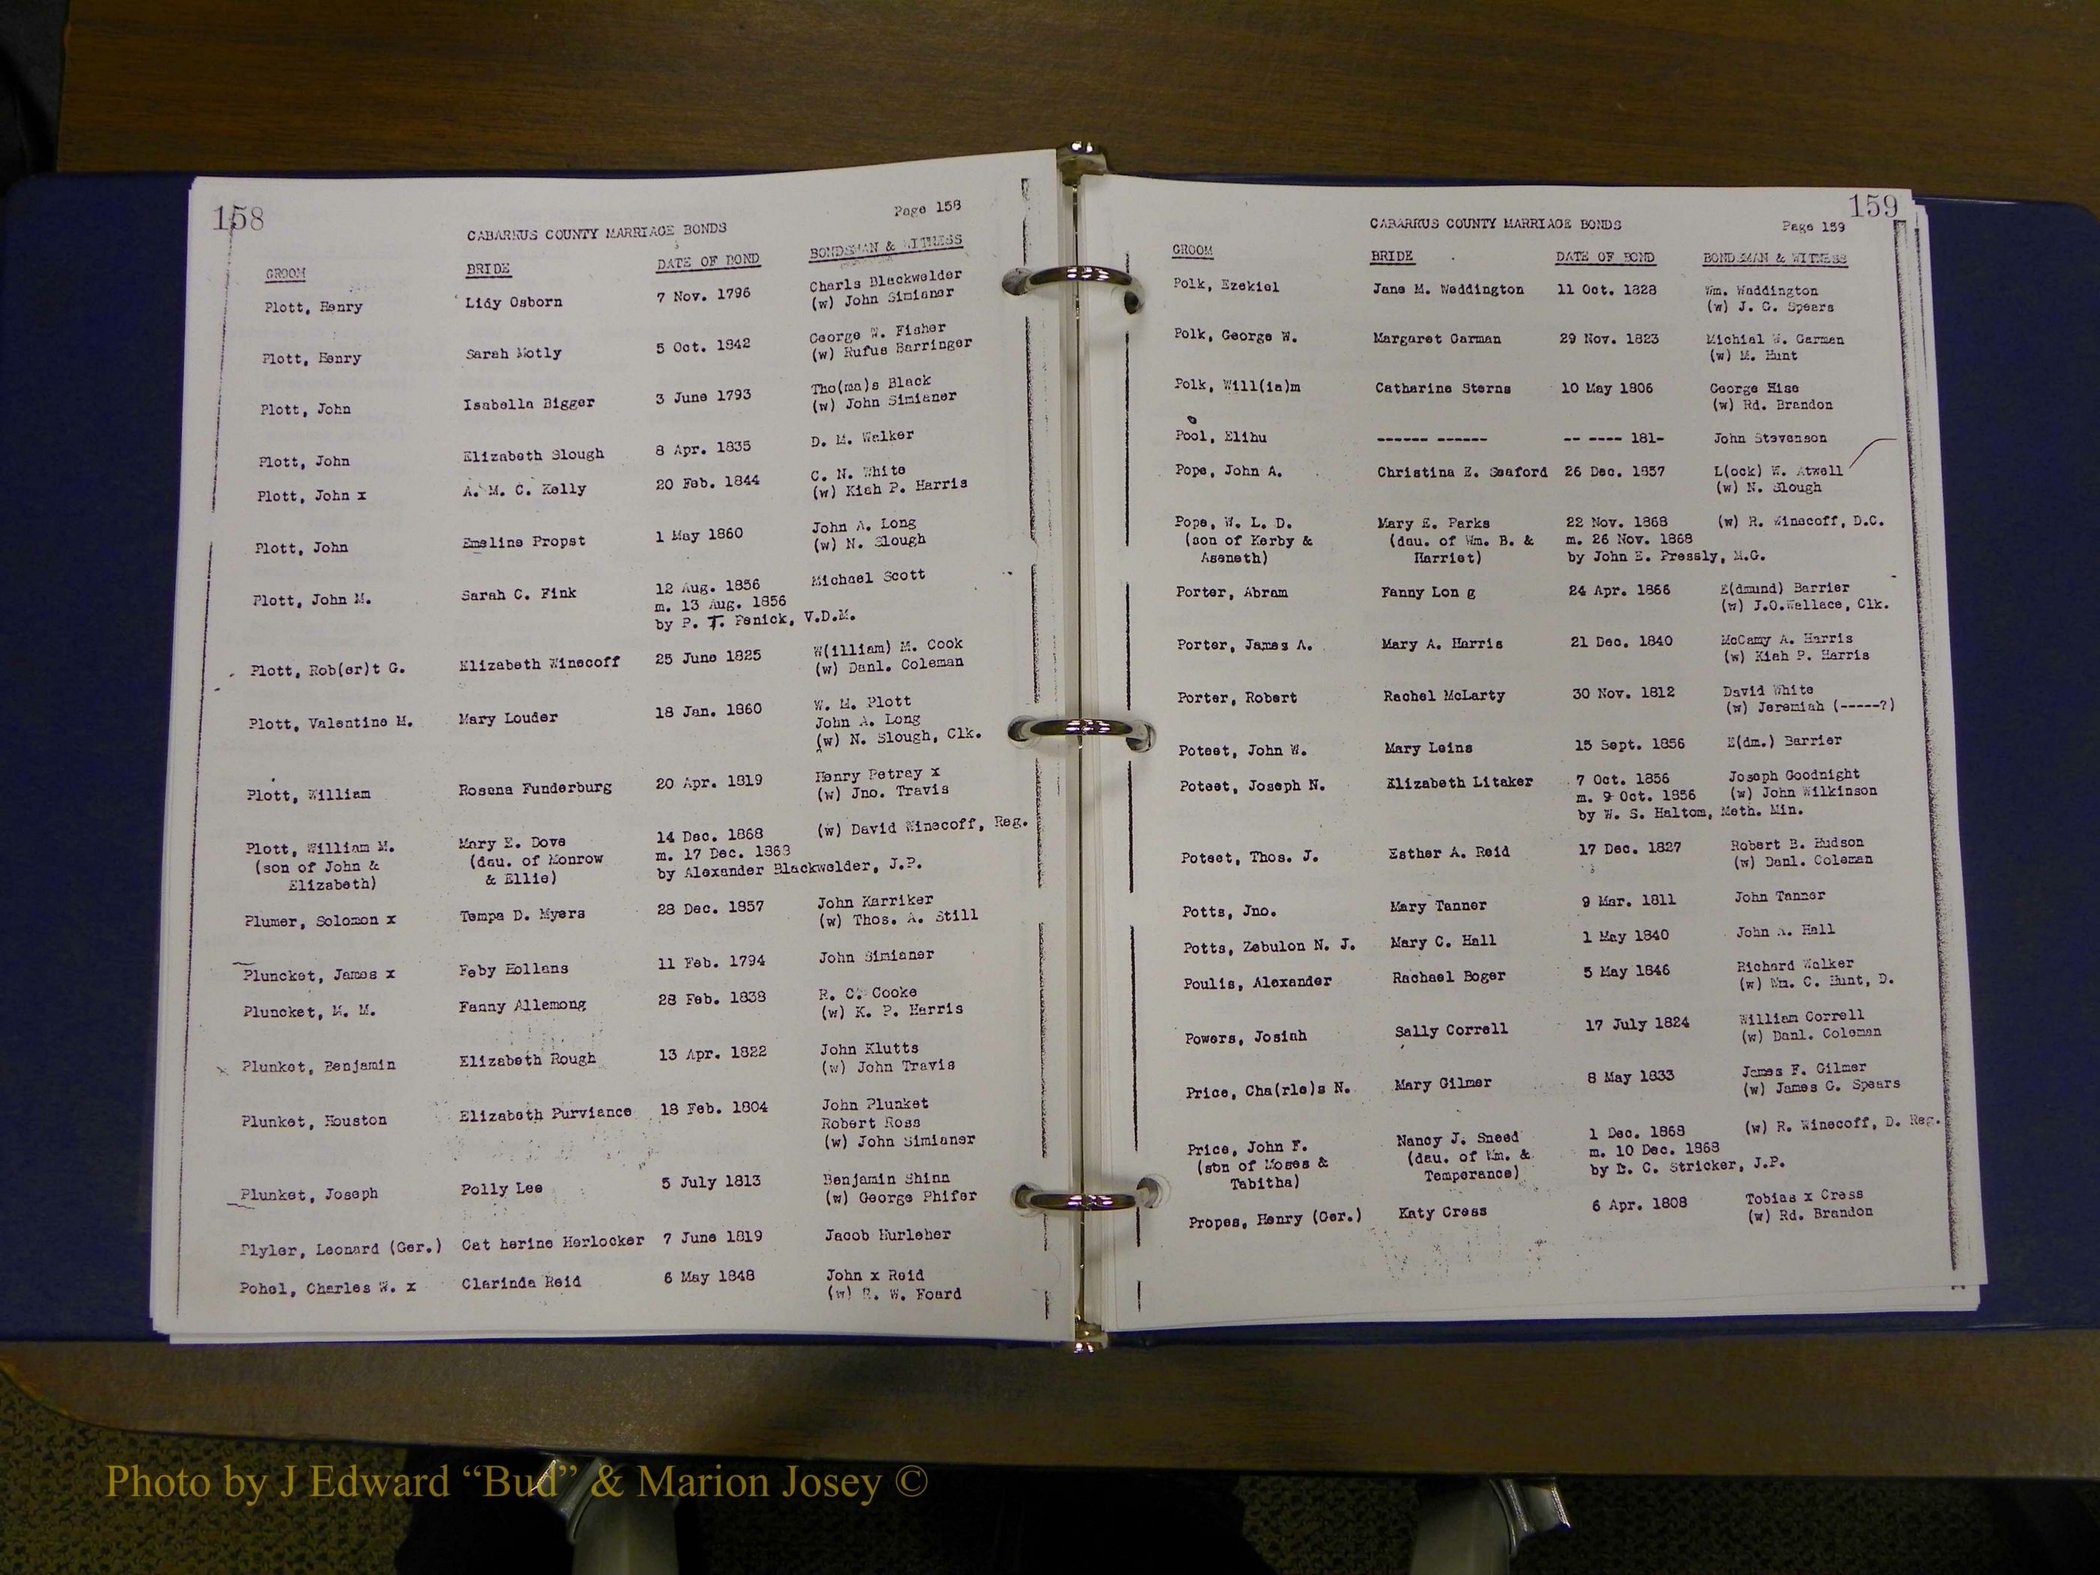 158
Page 158
CABARRUS COUNTY MARRIAGE BONDS
GROOM BRIDE DATE OF BOND BONDSMAN & WITNESS
Plott, Henry Lidy Osborn 7 Nov. 1796 Charls Blackwelder
(w) John Simianer
Plott, Henry Sarah Motly 5 Oct. 1842 George W. Fisher
(w) Rufus Barringer
Plott, John Isabella Bigger 3 June 1793 Tho(ma)s Black
(w) John Simianer
Plott, John Elizabeth Slough 8 Apr. 1835 D. M. Walker
Plott, John x A. M. C. Kelly 20 Feb. 1844 C. N. White
(w) Kiah P. Harris
Plott, John Emeline Propst 1 May 1860 John A. Long
(w) N. Slough
Plott, John M. Sarah C. Fink 12 Aug. 1856 Michael Scott
m. 13 Aug. 1856
by P. T. Penick, V.D.M.
Plott, Rob(er)t G. Elizabeth Winecoff 25 June 1825 W(illiam) M. Cook
(w) Danl. Coleman
Plott, Valentine M. Mary Louder 18 Jan. 1860 W. M. Plott
John A. Long
(w) N. Slough, Clk.
Plott, William Rosena Funderburg 20 Apr. 1819 Henry Petray x
(w) Jno. Travis
Plott, William M. Mary E. Dove 14 Dec. 1868 (w) David Winecoff, Reg.
(son of John & (dau. of Monrow m. 17 Dec. 1868
Elizabeth) & Ellie) by Alexander Blackwelder, J.P.
Plumer, Solomon x Tempa D. Myers 28 Dec. 1857 John Karriker
(w) Thos. A. Still
Pluncket, James x Feby Hollans 11 Feb. 1794 John Simianer
Pluncket, M. M. Fanny Allemong 28 Feb. 1838 R. C. Cooke
(w) K. P. Harris
Plunket, Benjamin Elizabeth Rough 13 Apr. 1822 John Klutts
(w) John Travis
Plunket, Houston Elizabeth Purviance 18 Feb. 1804 John Plunket
Robert Ross
(w) John Simianer
Plunket, Joseph Polly Lee 5 July 1813 Benjamin Shinn
(w) George Phifer
Plyler, Leonard (Ger.) Cat herine Herlocker 7 June 1819 Jacob Hurleher
Pohel, Charles W. x Clarinda Reid 6 May 1848 John x Reid
(w) R. W. Foard
159
CABARRUS COUNTY MARRIAGE BONDS Page 159
GROOM BRIDE DATE OF BOND BONDSMAN & WITNESS
Polk, Ezekiel Jane M. Weddington 11 Oct. 1828 Wm. Weddington
(w) J. G. Spears
Polk, George W. Margaret Garman 29 Nov. 1823 Michial W. Garmen
(w) M. Hunt
Polk, Will(ia)m Catharine Sterns 10 May 1806 George Hise
(w) Rd. Brandon
Pool, Elihu ------ ------ -- ---- 181- John Stevenson
Pope, John A. Christina E. Seaford 26 Dec. 1857 L(ock) W. Atwell
(w) N. Slough
Pope, W. L. D. Mary E. Parks 22 Nov. 1868 (w) R. Winecoff, D.C.
(son of Kerby & (dau. of Wm. B. & m. 26 Nov. 1868
Aseneth) Harriet) by John E. Pressly, M.G.
Porter, Abram Fanny Lon g 24 Apr. 1866 E(dmund) Barrier
(w) J.O.Wallace, Clk.
Porter, James A. Mary A. Harris 21 Dec. 1840 McCamy A. Harris
(w) Kiah P. Harris
Porter, Robert Rachel McLarty 30 Nov. 1812 David White
(w) Jeremiah (-----?)
Poteet, John W. Mary Leins 15 Sept. 1856 E(dm.) Barrier
Poteet, Joseph N. Elizabeth Litaker 7 Oct. 1856 Joseph Goodnight
m. 9 Oct. 1856 (w) John Wilkinson
by W. S. Haltom, Meth. Min.
Poteet, Thos. J. Esther A. Reid 17 Dec. 1827 Robert B. Hudson
(w) Danl. Coleman
Potts, Jno. Mary Tanner 9 Mar. 1811 John Tanner
Potts, Zebulon N. J. Mary C. Hall 1 May 1840 John A. Hall
Poulis, Alexander Rachael Boger 5 May 1846 Richard Walker
(w) Wm. C. Hunt, D.
Powers, Josiah Sally Correll 17 July 1824 William Correll
(w) Danl. Coleman
Price, Cha(rle)s N. Mary Gilmer 8 May 1833 James F. Gilmer
(w) James G. Spears
Price, John F. Nancy J. Sneed 1 Dec. 1868 (w) R. Winecoff, D. Reg.
(son of Moses & (dau. of Wm. & m. 10 Dec. 1868
Tabitha) Temperance) by D. C. Stricker, J.P.
Propes, Henry (Ger.) Katy Cress 6 Apr. 1808 Tobias x Cress
(w) Rd. Brandon
Photo by J Edward “Bud” & Marion Josey ©